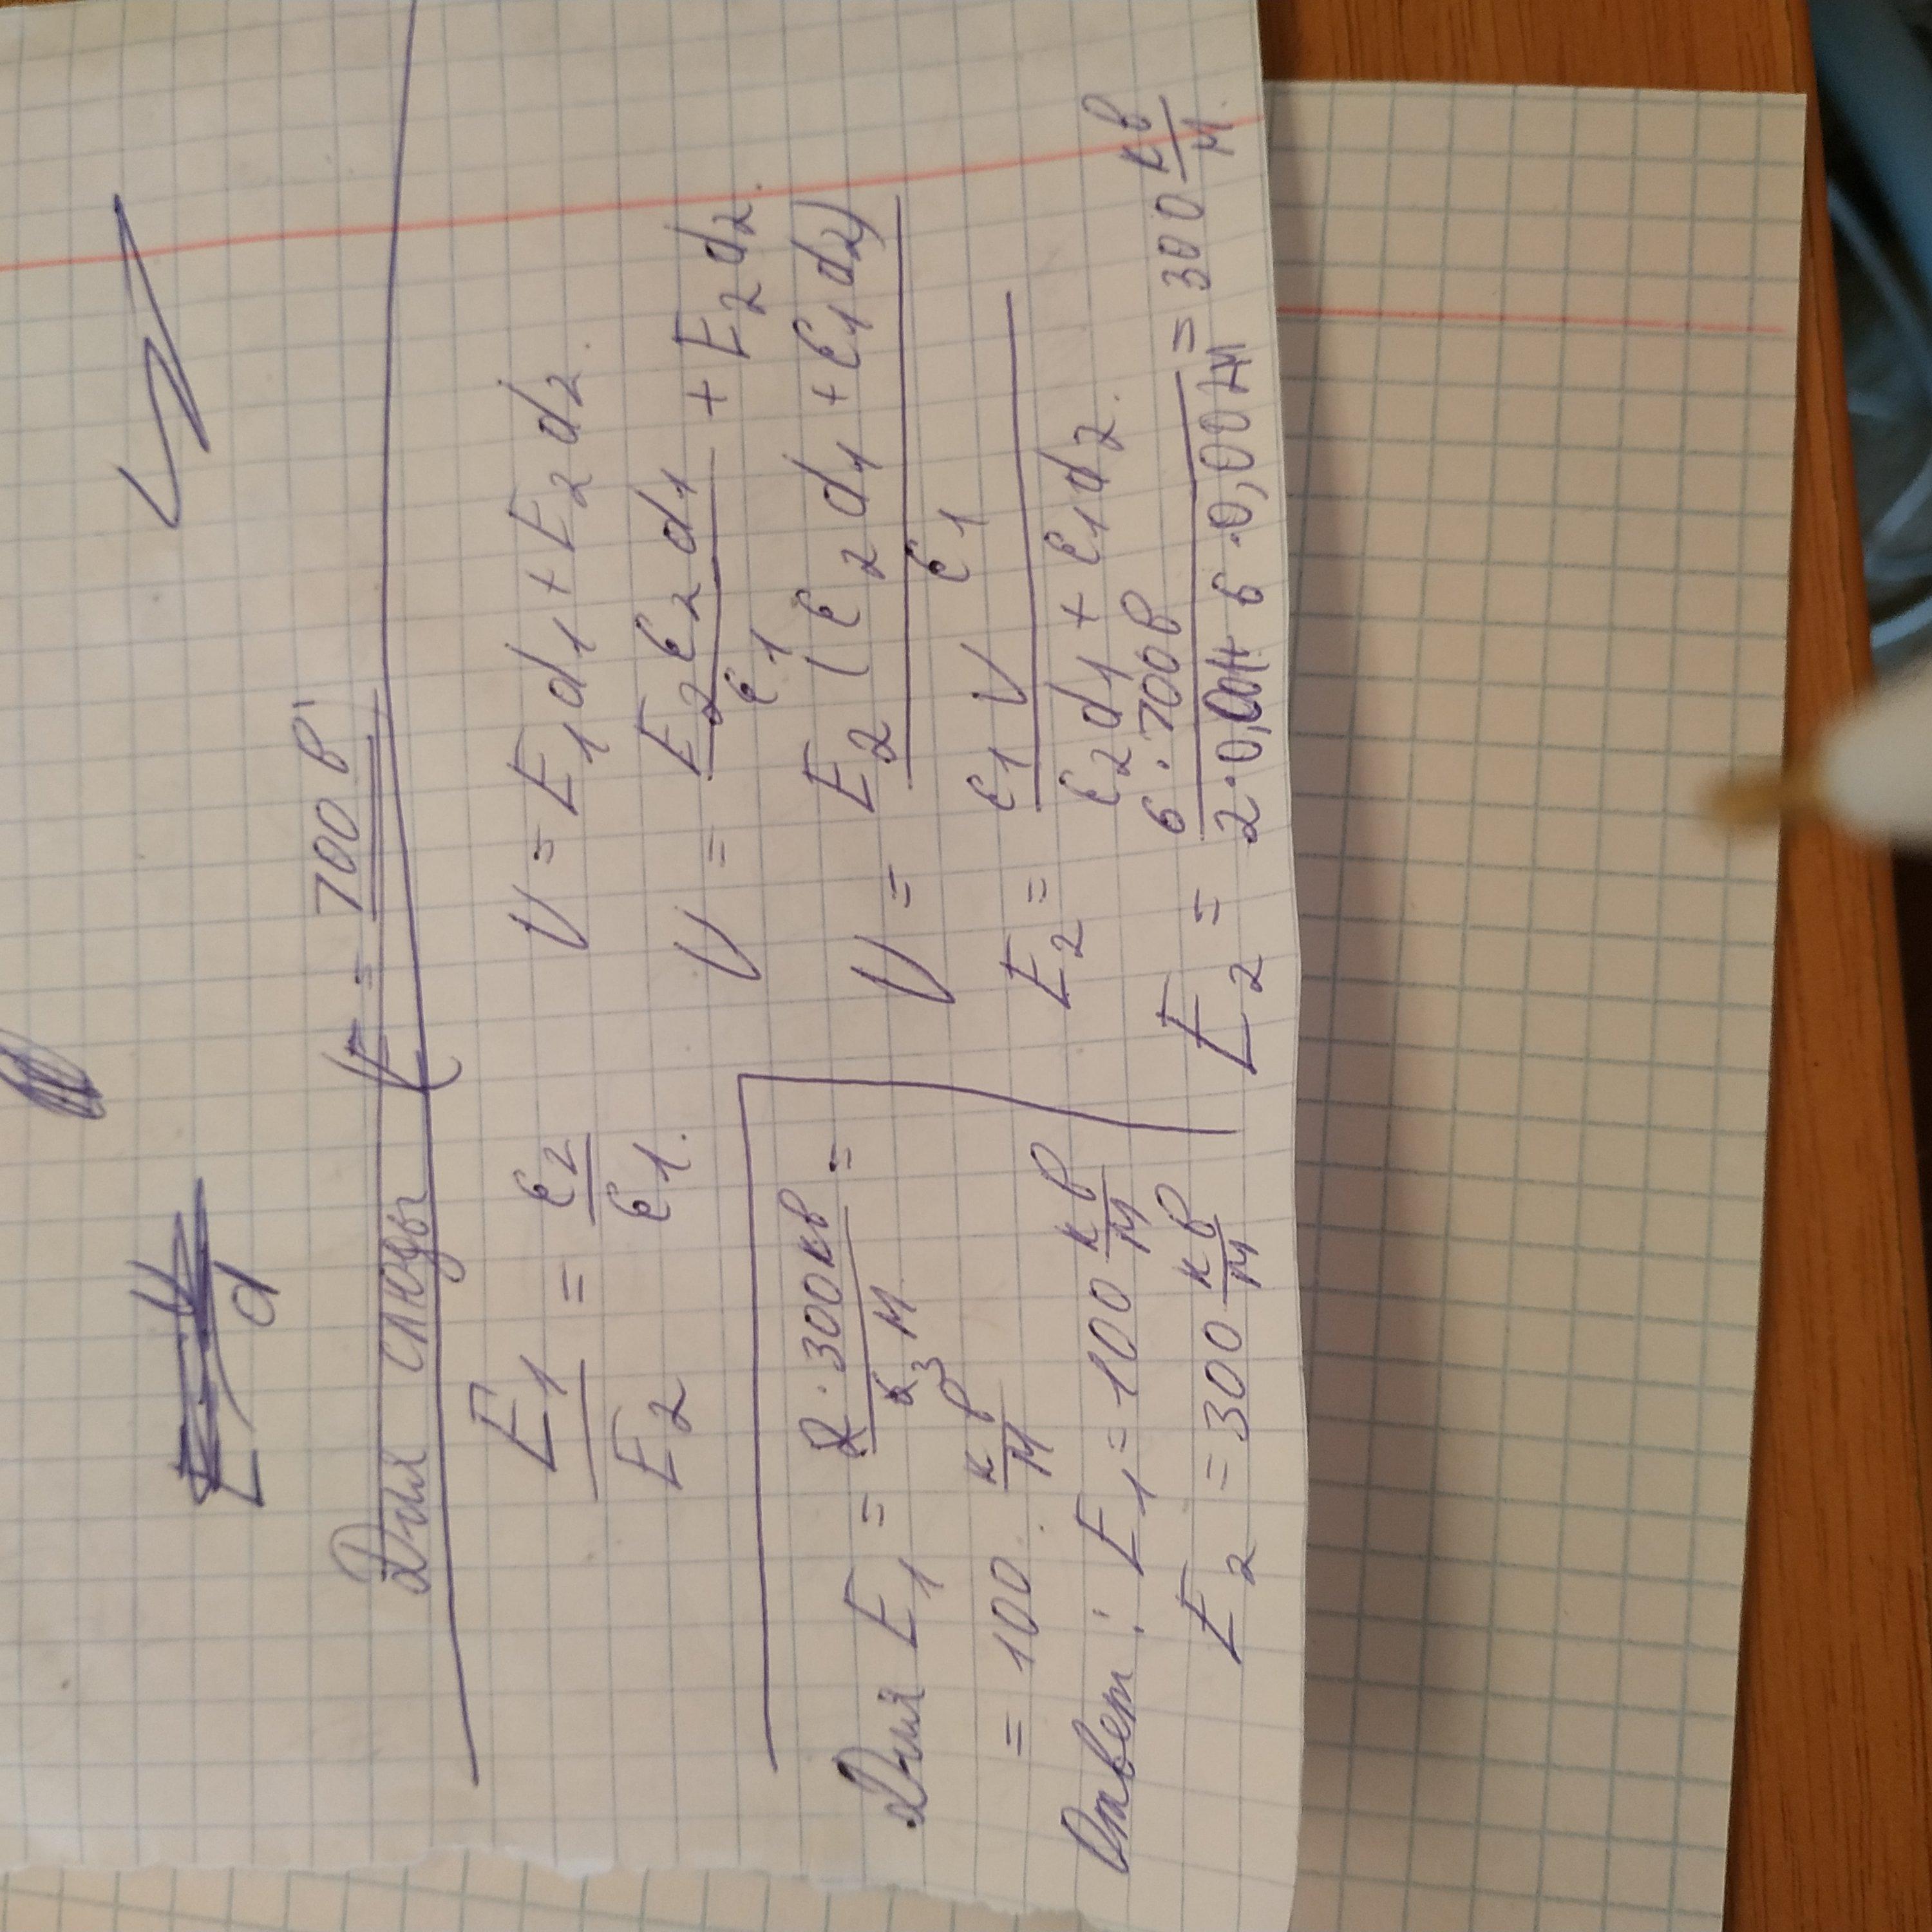 E = U/d
Для слюды E = 700 В
E₁/E₂ = ε₂/ε₁.
U = E₁d₁ + E₂d₂.
U = E₂ε₂d₁/ε₁ + E₂d₂.
U = E₂(ε₂d₁ + ε₁d₂)/ε₁
E₂ = ε₁U/ε₂d₁ + ε₁d₂.
E₂ = 6·700В/2·0,004+6·0,001м = 300 кв/м.
Для E₁ = 2·300кв/6 3 м =
= 100 кв/м.
Ответ: E₁ = 100 кв/м
E₂ = 300 кв/м